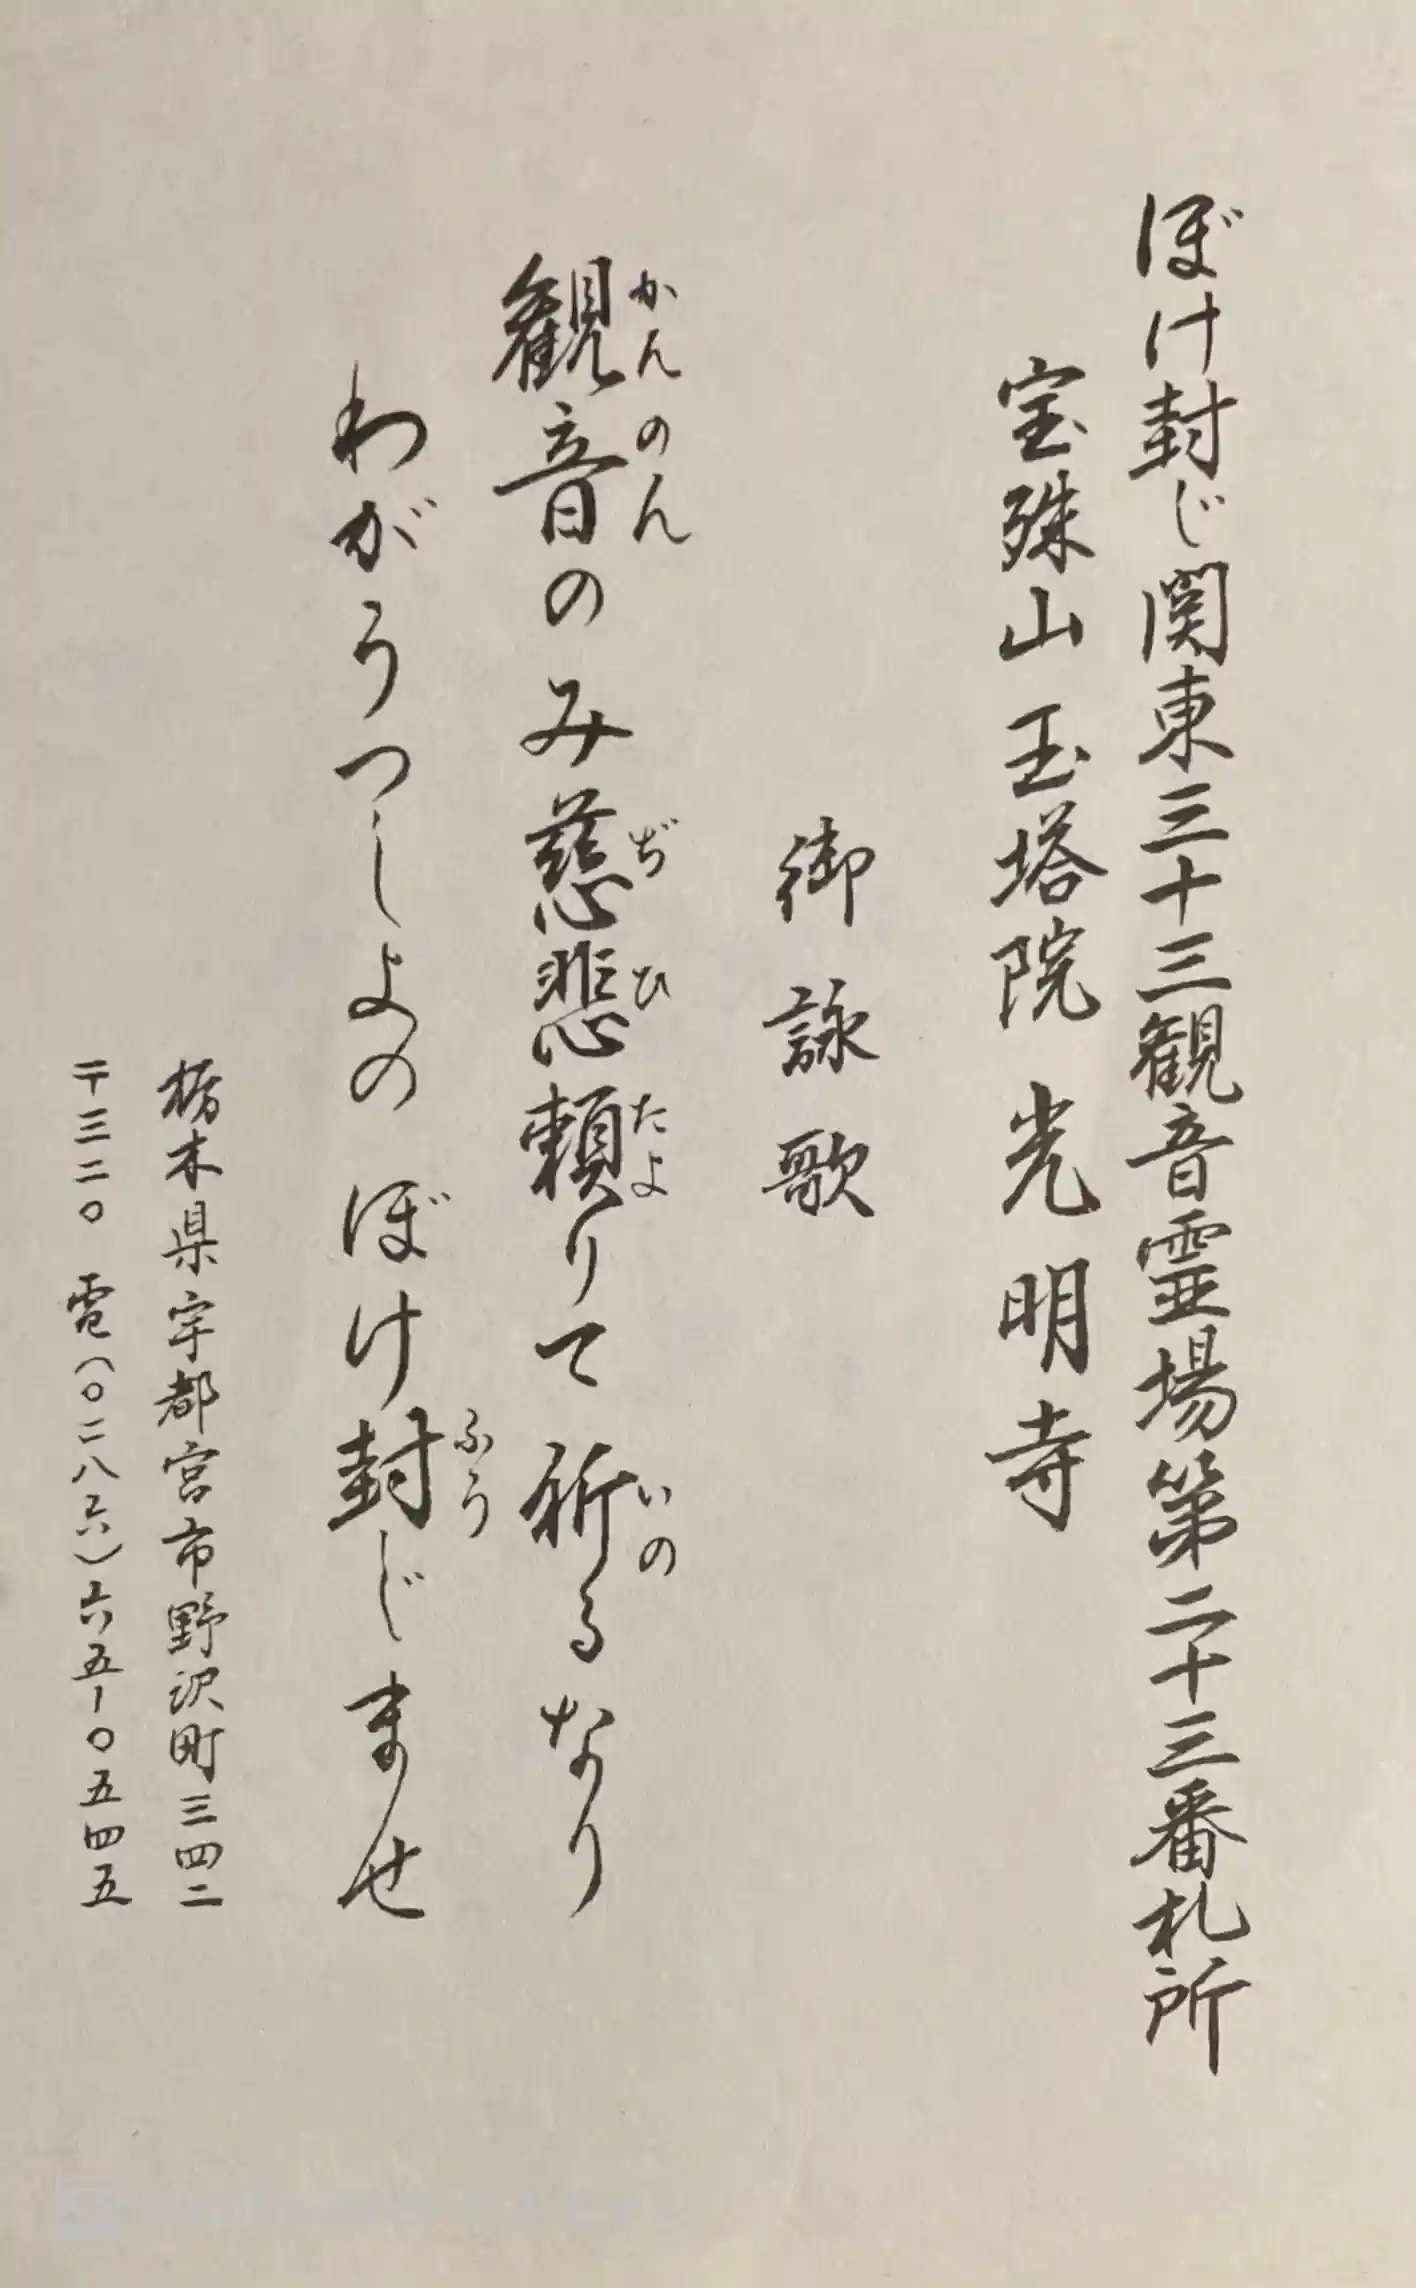 ぼけ封じ関東三十三観音霊場第二十三番札所
宝珠山玉塔院光明寺
御詠歌
観音のみ慈悲頼りて祈るなり
かんのん ぢひ たよ いの
わがうつしよのぼけ封じませ
ふう
栃木県宇都宮市野沢町三四二
〒三二〇 電(〇二八六)六五-〇五四五